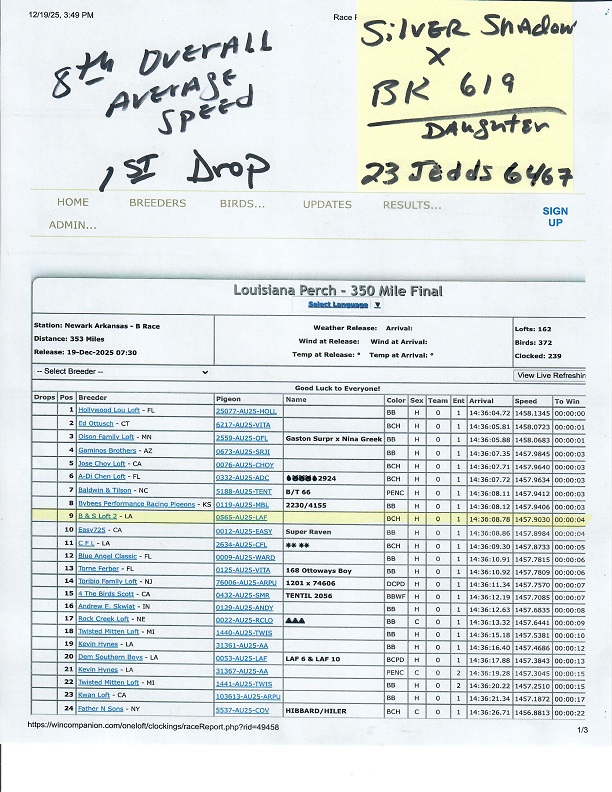 12/19/25, 3:49 PM
Race
8th OVERALL
AVERAGE
SPEED
1ST Drop
SilVER Shadow
X
BK 619
Daughter
23 Jedds 6467
HOME BREEDERS BIRDS... UPDATES RESULTS...
ADMIN...
SIGN UP
Louisiana Perch - 350 Mile Final
Select Language ▼
Station: Newark Arkansas - B Race
Distance: 353 Miles
Release: 19-Dec-2025 07:30
Weather Release: Arrival:
Wind at Release: Wind at Arrival:
Temp at Release: ° Temp at Arrival: °
Lofts: 162
Birds: 372
Clocked: 239
-- Select Breeder --
View Live Refreshin
Good Luck to Everyone!
Drops Pos Breeder Pigeon Name Color Sex Team Ent Arrival Speed To Win
1 Hollywood Lou Loft - FL 25077-AU25-HOLL BB H 0 1 14:36:04.72 1458.1345 00:00:00
2 Ed Ottusch - CT 6217-AU25-VITA BCH H 0 1 14:36:05.81 1458.0723 00:00:01
3 Olson Family Loft - MN 2559-AU25-OFL Gaston Surpr x Nina Greek BB H 0 1 14:36:05.88 1458.0683 00:00:01
4 Gaminos Brothers - AZ 0673-AU25-SRJI BB H 0 1 14:36:07.35 1457.9845 00:00:03
5 Jose Choy Loft - CA 0076-AU25-CHOY BCH H 0 1 14:36:07.71 1457.9640 00:00:03
6 A-Di Chen Loft - FL 0332-AU25-ADC 2924 BCH H 0 1 14:36:07.72 1457.9634 00:00:03
7 Baldwin & Tilson - NC 5188-AU25-TENT B/T 66 PENC H 0 1 14:36:08.11 1457.9412 00:00:03
8 Bybees Performance Racing Pigeons - KS 0119-AU25-MBL 2230/4155 BB H 0 1 14:36:08.12 1457.9406 00:00:03
9 B & S Loft 2 - LA 0565-AU25-LAF BCH H 0 1 14:36:08.78 1457.9030 00:00:04
10 Easy725 - CA 0012-AU25-EASY Super Raven BB H 0 1 14:36:08.86 1457.8984 00:00:04
11 C F L - LA 2634-AU25-CFL ** ** BCH H 0 1 14:36:09.30 1457.8733 00:00:05
12 Blue Angel Classic - FL 0009-AU25-WARD BB H 0 1 14:36:10.91 1457.7815 00:00:06
13 Torne Ferber - FL 0125-AU25-VITA 168 Ottoways Boy BB H 0 1 14:36:10.92 1457.7809 00:00:06
14 Toribio Family Loft - NJ 76006-AU25-ARPU 1201 x 74606 DCPD H 0 1 14:36:11.34 1457.7570 00:00:07
15 4 The Birds Scott - CA 0432-AU25-SMR TENTIL 2056 BBWF H 0 1 14:36:12.19 1457.7085 00:00:07
16 Andrew E. Skwiat - IN 0129-AU25-ANDY BB H 0 1 14:36:12.63 1457.6835 00:00:08
17 Rock Creek Loft - NE 0022-AU25-RCLO ▲▲▲ BB C 0 1 14:36:13.32 1457.6441 00:00:09
18 Twisted Mitten Loft - MI 1440-AU25-TWIS BB H 0 1 14:36:15.18 1457.5381 00:00:10
19 Kevin Hynes - LA 31361-AU25-AA BB H 0 1 14:36:16.40 1457.4686 00:00:12
20 Dem Southern Boys - LA 0053-AU25-LAF LAF 6 & LAF 10 BCPD H 0 1 14:36:17.88 1457.3843 00:00:13
21 Kevin Hynes - LA 31367-AU25-AA PENC C 0 2 14:36:19.28 1457.3045 00:00:15
22 Twisted Mitten Loft - MI 1441-AU25-TWIS BB H 0 2 14:36:20.22 1457.2510 00:00:15
23 Kwan Loft - CA 103613-AU25-ARPU BB H 0 1 14:36:21.34 1457.1872 00:00:17
24 Father N Sons - NY 5537-AU25-COV HIBBARD/HILER BCH C 0 1 14:36:26.71 1456.8813 00:00:22
https://wincompanion.com/oneloft/clockings/raceReport.php?rid=49458
1/3